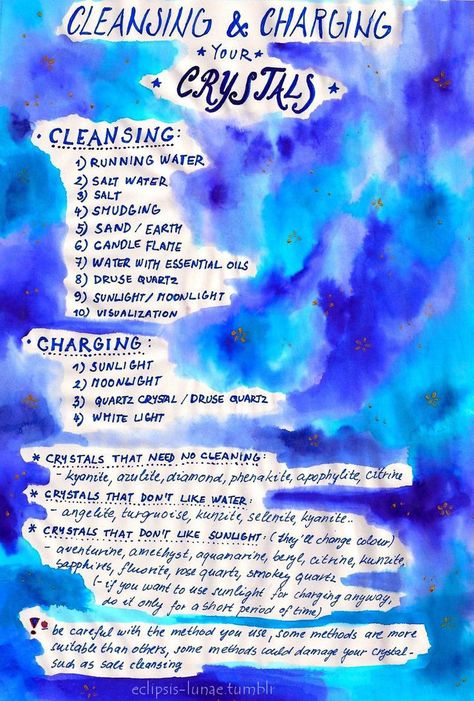 CLEANSING & CHARGING
* YOUR *
* CRYSTALS *
• CLEANSING:
1) RUNNING WATER
2) SALT WATER
3) SALT
4) SMUDGING
5) SAND / EARTH
6) CANDLE FLAME
7) WATER WITH ESSENTIAL OILS
8) DRUSE QUARTZ
9) SUNLIGHT / MOONLIGHT
10) VISUALIZATION
• CHARGING:
1) SUNLIGHT
2) MOONLIGHT
3) QUARTZ CRYSTAL / DRUSE QUARTZ
4) WHITE LIGHT
* CRYSTALS THAT NEED NO CLEANING:
- kyanite, azulite, diamond, phenakite, apophylite, citrine
* CRYSTALS THAT DON'T LIKE WATER:
- angelite, turquoise, kunzite, selenite, kyanite..
* CRYSTALS THAT DON'T LIKE SUNLIGHT: (they'll change colour)
- aventurine, amethyst, aquamarine, beryl, citrine, kunzite,
sapphires, fluorite, rose quartz, smokey quartz
(- if you want to use sunlight for charging anyway,
do it only for a short period of time)
!* be careful with the method you use, some methods are more
suitable than others, some methods could damage your crystal -
such as salt cleansing
eclipsis-lunae.tumblr